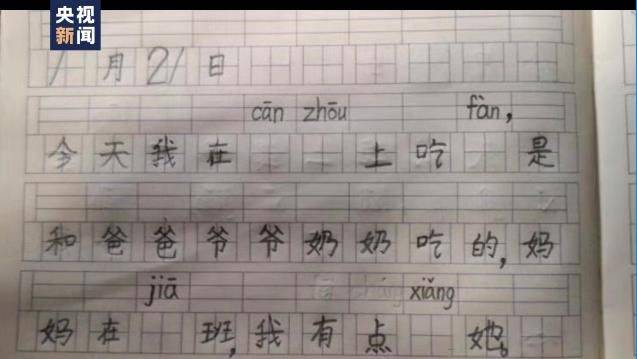 央视
新闻
1月21日
cān zhōu fàn,
今天我在上吃是
和爸爸爷爷奶奶吃的,妈
jiā xiǎng
妈在班,我有点她。